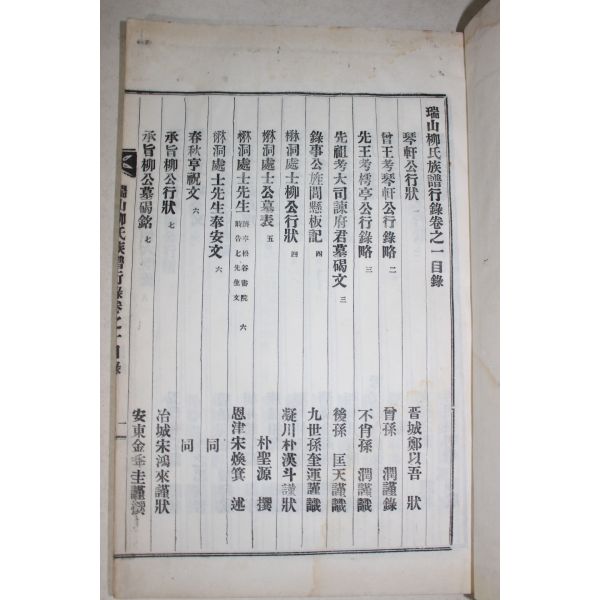 瑞山柳氏族譜行錄卷之一目錄
琴軒公行狀 一 晋城鄭以吾 狀
曾王考琴軒公行錄略 二 曾孫 潤謹錄
先王考樗亭公行錄略 三 不肖孫 潤謹識
先祖考大司諫府君墓碣文 三 後孫 匡天謹識
錄事公旌閭懸板記 四 九世孫奎運謹識
懋洞處士柳公行狀 四 凝川朴漢斗謹狀
懋洞處士公墓表 五 朴聖源 撰
懋洞處士先生 躋享松谷書院時告七先生文 六 恩津宋煥箕 述
懋洞處士先生奉安文 六 同
春秋享祝文 六 同
承旨柳公行狀 七 冶城宋鴻來謹狀
承旨柳公墓碣銘 七 安東金 圭謹撰
瑞山柳氏族譜行錄卷之一目錄 一